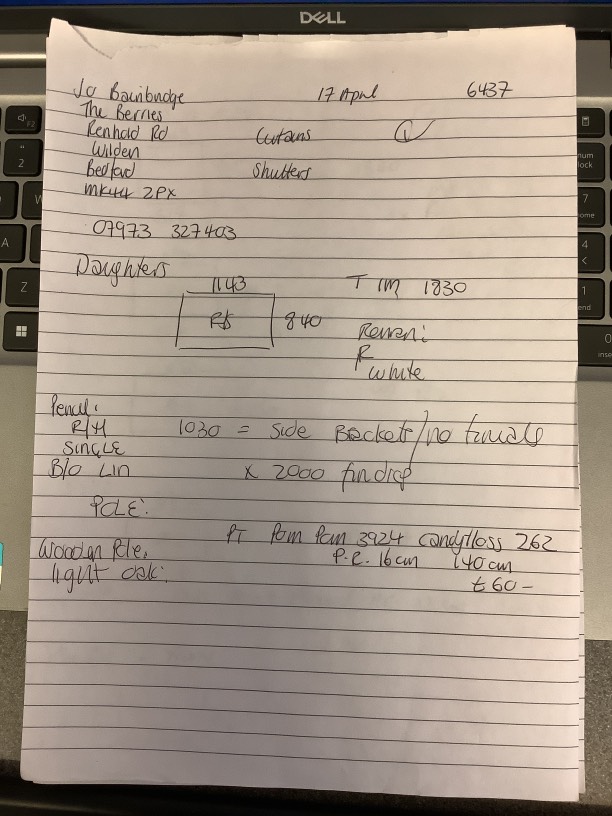 DELL
Jo Bainbridge 17 April 6437
The Berries
Renhold Rd Curtains 1
Wilden
Bedford Shutters
MK44 2PX
07973 327403
Daughters
1143 T 1830
840
R
white
Pencil:
R/H 1030 = Side Brackets/no finials
SINGLE
B/O Lin x 2000 fin drop
POLE:
PT Pom Pom 3924 Candyfloss 262
Wooden Pole, P.R. 16cm 140cm
light oak: £60-